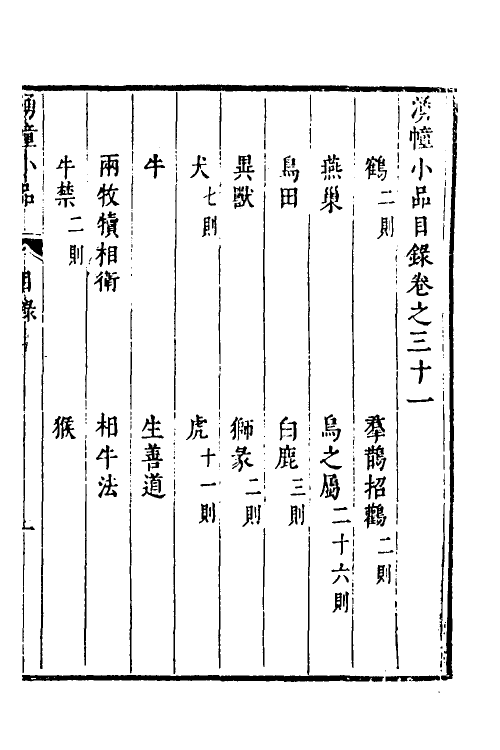 湧幢小品目錄卷之三十一
鶴二則 羣鵲招鸛二則
燕巢 鳥之屬二十六則
鳥田 白鹿三則
異獸 獅彖二則
犬七則 虎十一則
牛 生善道
兩牧犢相衛 相牛法
牛禁二則 猴
湧幢小品 目錄